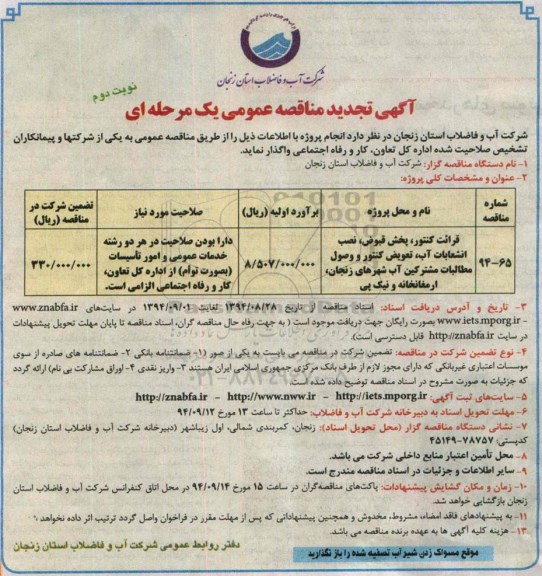 شرکت آب و فاضلاب استان زنجان
نوبت دوم
آگهی تجدید مناقصه عمومی یک مرحله ای
شرکت آب و فاضلاب استان زنجان در نظر دارد انجام پروژه با اطلاعات ذیل را از طریق مناقصه عمومی به یکی از شرکتها و پیمانکاران
تشخیص صلاحیت شده اداره کل تعاون، کار و رفاه اجتماعی واگذار نماید.
۱- نام دستگاه مناقصه گزار: شرکت آب و فاضلاب استان زنجان
۲- عنوان و مشخصات کلی پروژه:
شماره مناقصه | نام و محل پروژه | برآورد اولیه (ریال) | صلاحیت مورد نیاز | تضمین شرکت در مناقصه (ریال)
۹۴-۶۵ | قرائت کنتور، پخش قبوض، نصب انشعابات آب، تعویض کنتور و وصول مطالبات مشترکین آب شهرهای زنجان، ارمغانخانه و نیک پی | ۸/۵۰۷/۰۰۰/۰۰۰ | دارا بودن صلاحیت در هر دو رشته خدمات عمومی و امور تأسیسات (بصورت توأم) از اداره کل تعاون، کار و رفاه اجتماعی الزامی است. | ۳۳۰/۰۰۰/۰۰۰
۳- تاریخ و آدرس دریافت اسناد: اسناد مناقصه از تاریخ ۱۳۹۴/۰۸/۲۸ لغایت ۱۳۹۴/۰۹/۰۱ در سایت‌های www.znabfa.ir
- www.iets.mporg.ir بصورت رایگان جهت دریافت موجود است ( به جهت رفاه حال مناقصه گران، اسناد مناقصه تا پایان مهلت تحویل پیشنهادات
در سایت http://znabfa.ir قابل دسترسی است).
۴- نوع تضمین شرکت در مناقصه: تضمین شرکت در مناقصه می بایست به یکی از صور (۱- ضمانتنامه بانکی ۲- ضمانتنامه های صادره از سوی
موسسات اعتباری غیربانکی که دارای مجوز لازم از طرف بانک مرکزی جمهوری اسلامی ایران هستند ۳- واریز نقدی ۴- اوراق مشارکت بی نام) ارائه گردد
که جزئیات به صورت مشروح در اسناد مناقصه توضیح داده شده است.
۵- سایت‌های ثبت آگهی: http://iets.mporg.ir - http://www.nww.ir - http://znabfa.ir
۶- مهلت تحویل اسناد به دبیرخانه شرکت آب و فاضلاب: حداکثر تا ساعت ۱۳ مورخ ۹۴/۰۹/۱۲
۷- نشانی دستگاه مناقصه گزار (محل تحویل اسناد): زنجان، کمربندی شمالی، اول زیباشهر (دبیرخانه شرکت آب و فاضلاب استان زنجان)
کدپستی: ۷۸۷۵۷-۴۵۱۴۹
۸- محل تأمین اعتبار منابع داخلی شرکت می باشد.
۹- سایر اطلاعات و جزئیات در اسناد مناقصه مندرج است.
۱۰- زمان و مکان گشایش پیشنهادات: پاکت‌های مناقصه‌گران در ساعت ۱۵ مورخ ۹۴/۰۹/۱۴ در محل اتاق کنفرانس شرکت آب و فاضلاب استان
زنجان بازگشایی خواهد شد.
۱۱- به پیشنهادهای فاقد امضاء، مشروط، مخدوش و همچنین پیشنهاداتی که پس از مهلت مقرر در فراخوان واصل گردد ترتیب اثر داده نخواهد
۱۳- هزینه کلیه آگهی ها به عهده برنده مناقصه می باشد.
دفتر روابط عمومی شرکت آب و فاضلاب استان زنجان
موقع مسواک زدن شیر آب تصفیه شده را باز نگذارید